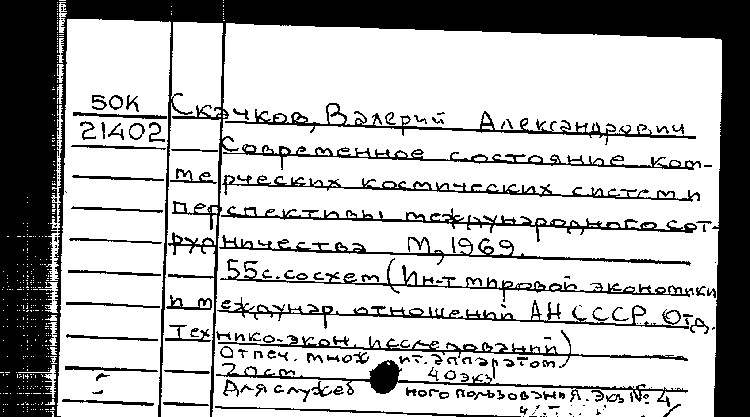 50К Скачков, Валерий Александрович
21402
Современное состояние ком-
мерческих космических систем и
перспективы международного сот-
рудничества М, 1969.
55с. со схем (Ин-т мировой экономики
и междунар. отношений АН СССР. Отд.
технико-экон. исследований)
Отпеч. множ ит. аппаратом.
20 ст. 40 экз
Для служеб ного пользования. Экз № 4